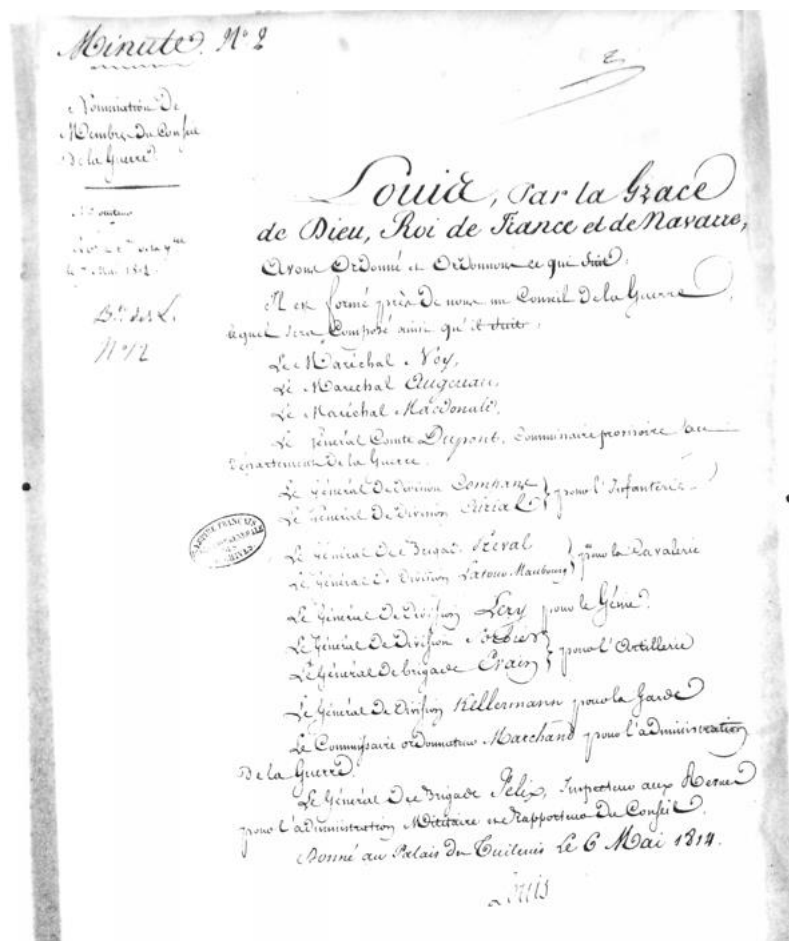 Minute. N° 2
Nomination De
Membres Du Conseil
De la Guerre.
le 7 Mai 1814
B.in des L.
N° 12
Louis, Par la Grace
de Dieu, Roi de France et de Navarre,
Avons Ordonné et Ordonnons ce qui suit,
Il est formé près De nous un Conseil De la Guerre,
lequel sera Composé ainsi qu'il suit:
Le Maréchal Ney,
Le Maréchal Augereau,
Le Maréchal Macdonald,
Le Général Comte Dupont, Commissaire provisoire au
Département De la Guerre.
Le Général De Division Compans
Le Général De Division Curial } pour l'Infanterie
Le Général De Brigade Préval
Le Général De Division Latour Maubourg } pour la Cavalerie
Le Général De Division Lery pour le Génie.
Le Général De Division Sorbier
Le Général De brigade Evain } pour l'Artillerie
Le Général De Division Kellermann pour la Garde
Le Commissaire ordonnateur Marchand pour l'administration
De la Guerre.
Le Général De Brigade Félix, Inspecteur aux Revues
pour l'administration Militaire et Rapporteur Du Conseil.
Donné au Palais Des Tuileries Le 6 Mai 1814.
Louis